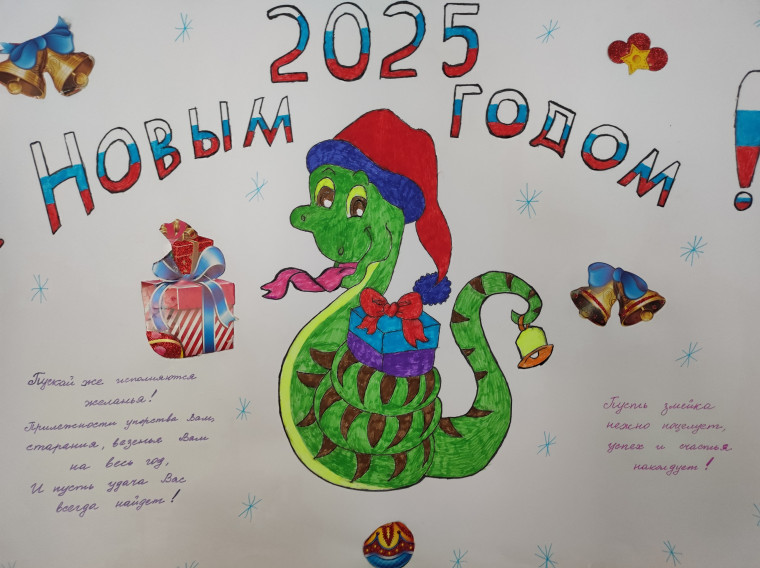 2025
Новым годом!
Пускай же исполняются
желанья!
Прилежности упорства Вам,
старания, везенье Вам
на весь год,
И пусть удача Вас
всегда найдет!
Пусть змейка
нежно поцелует,
успех и счастья
наколдует!